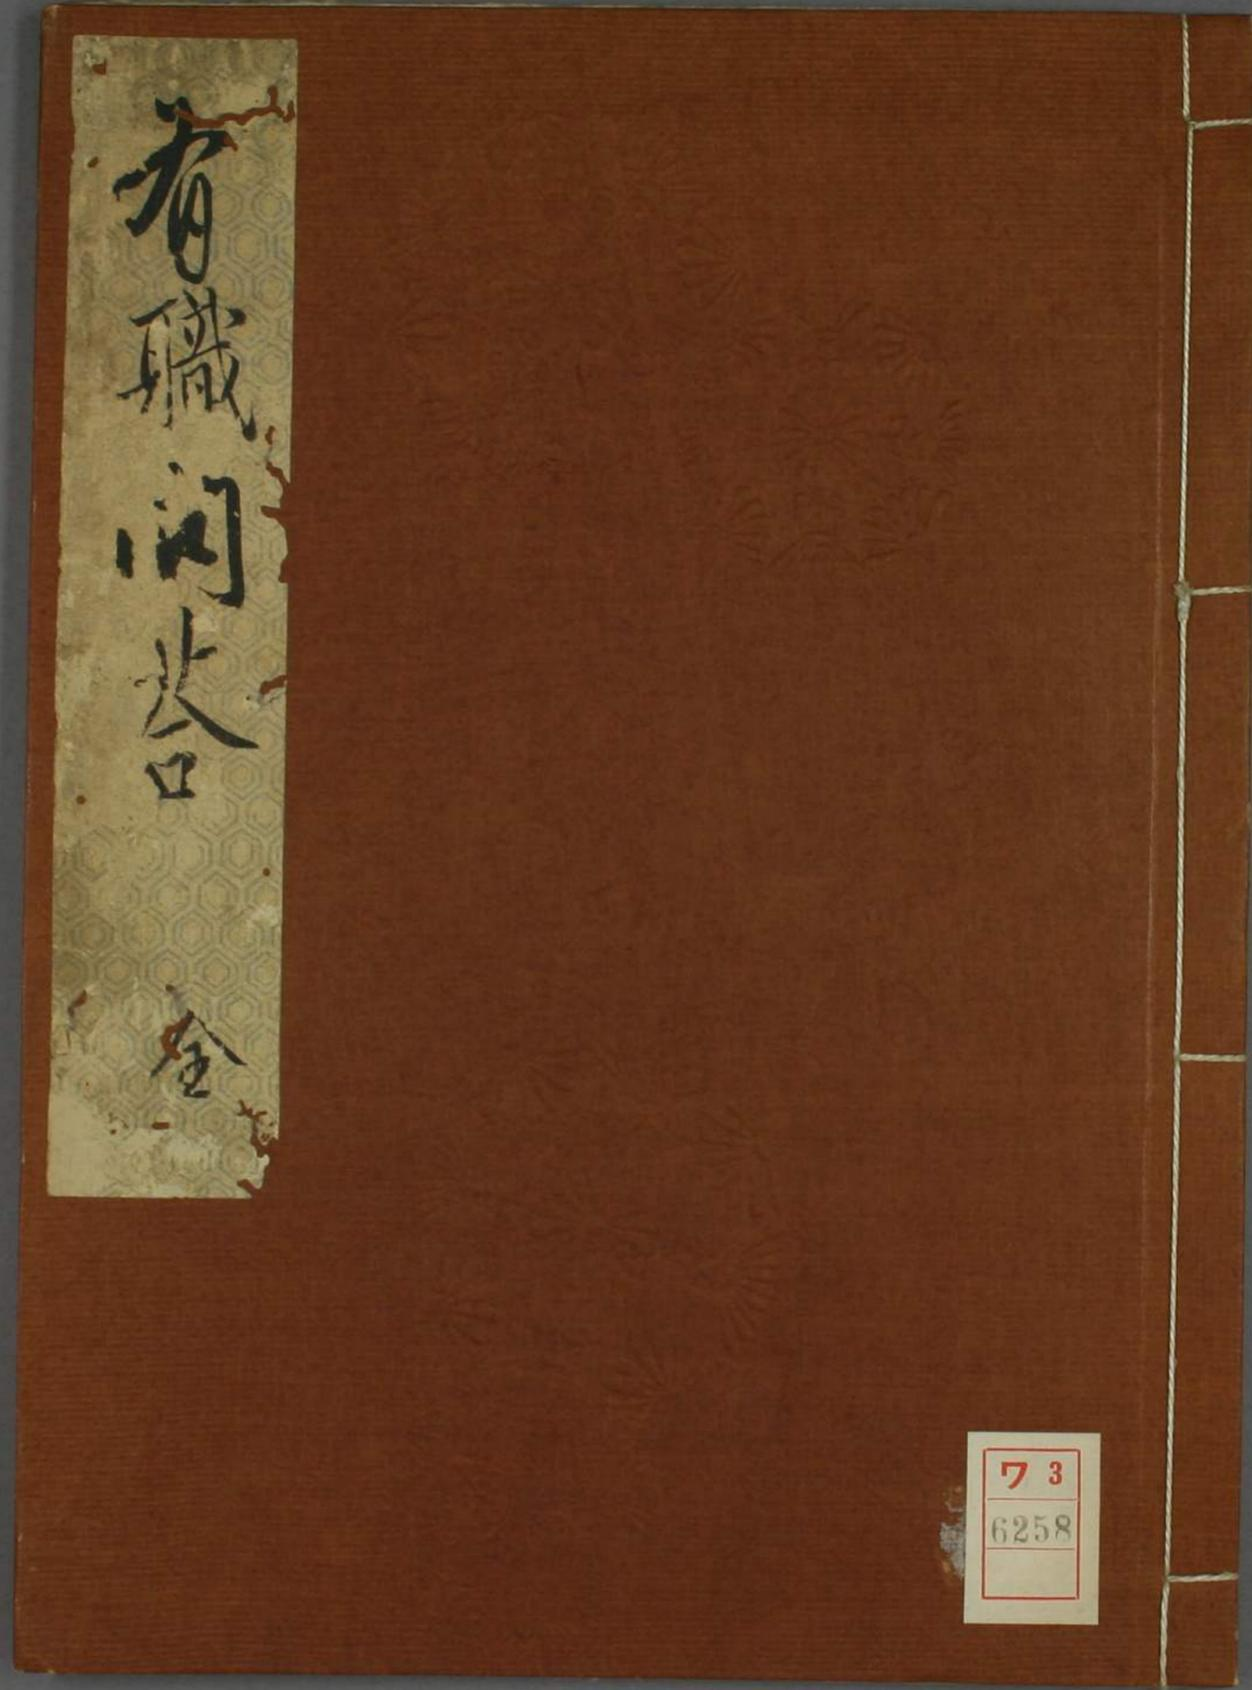 有職問答
全
ワ 3
6258